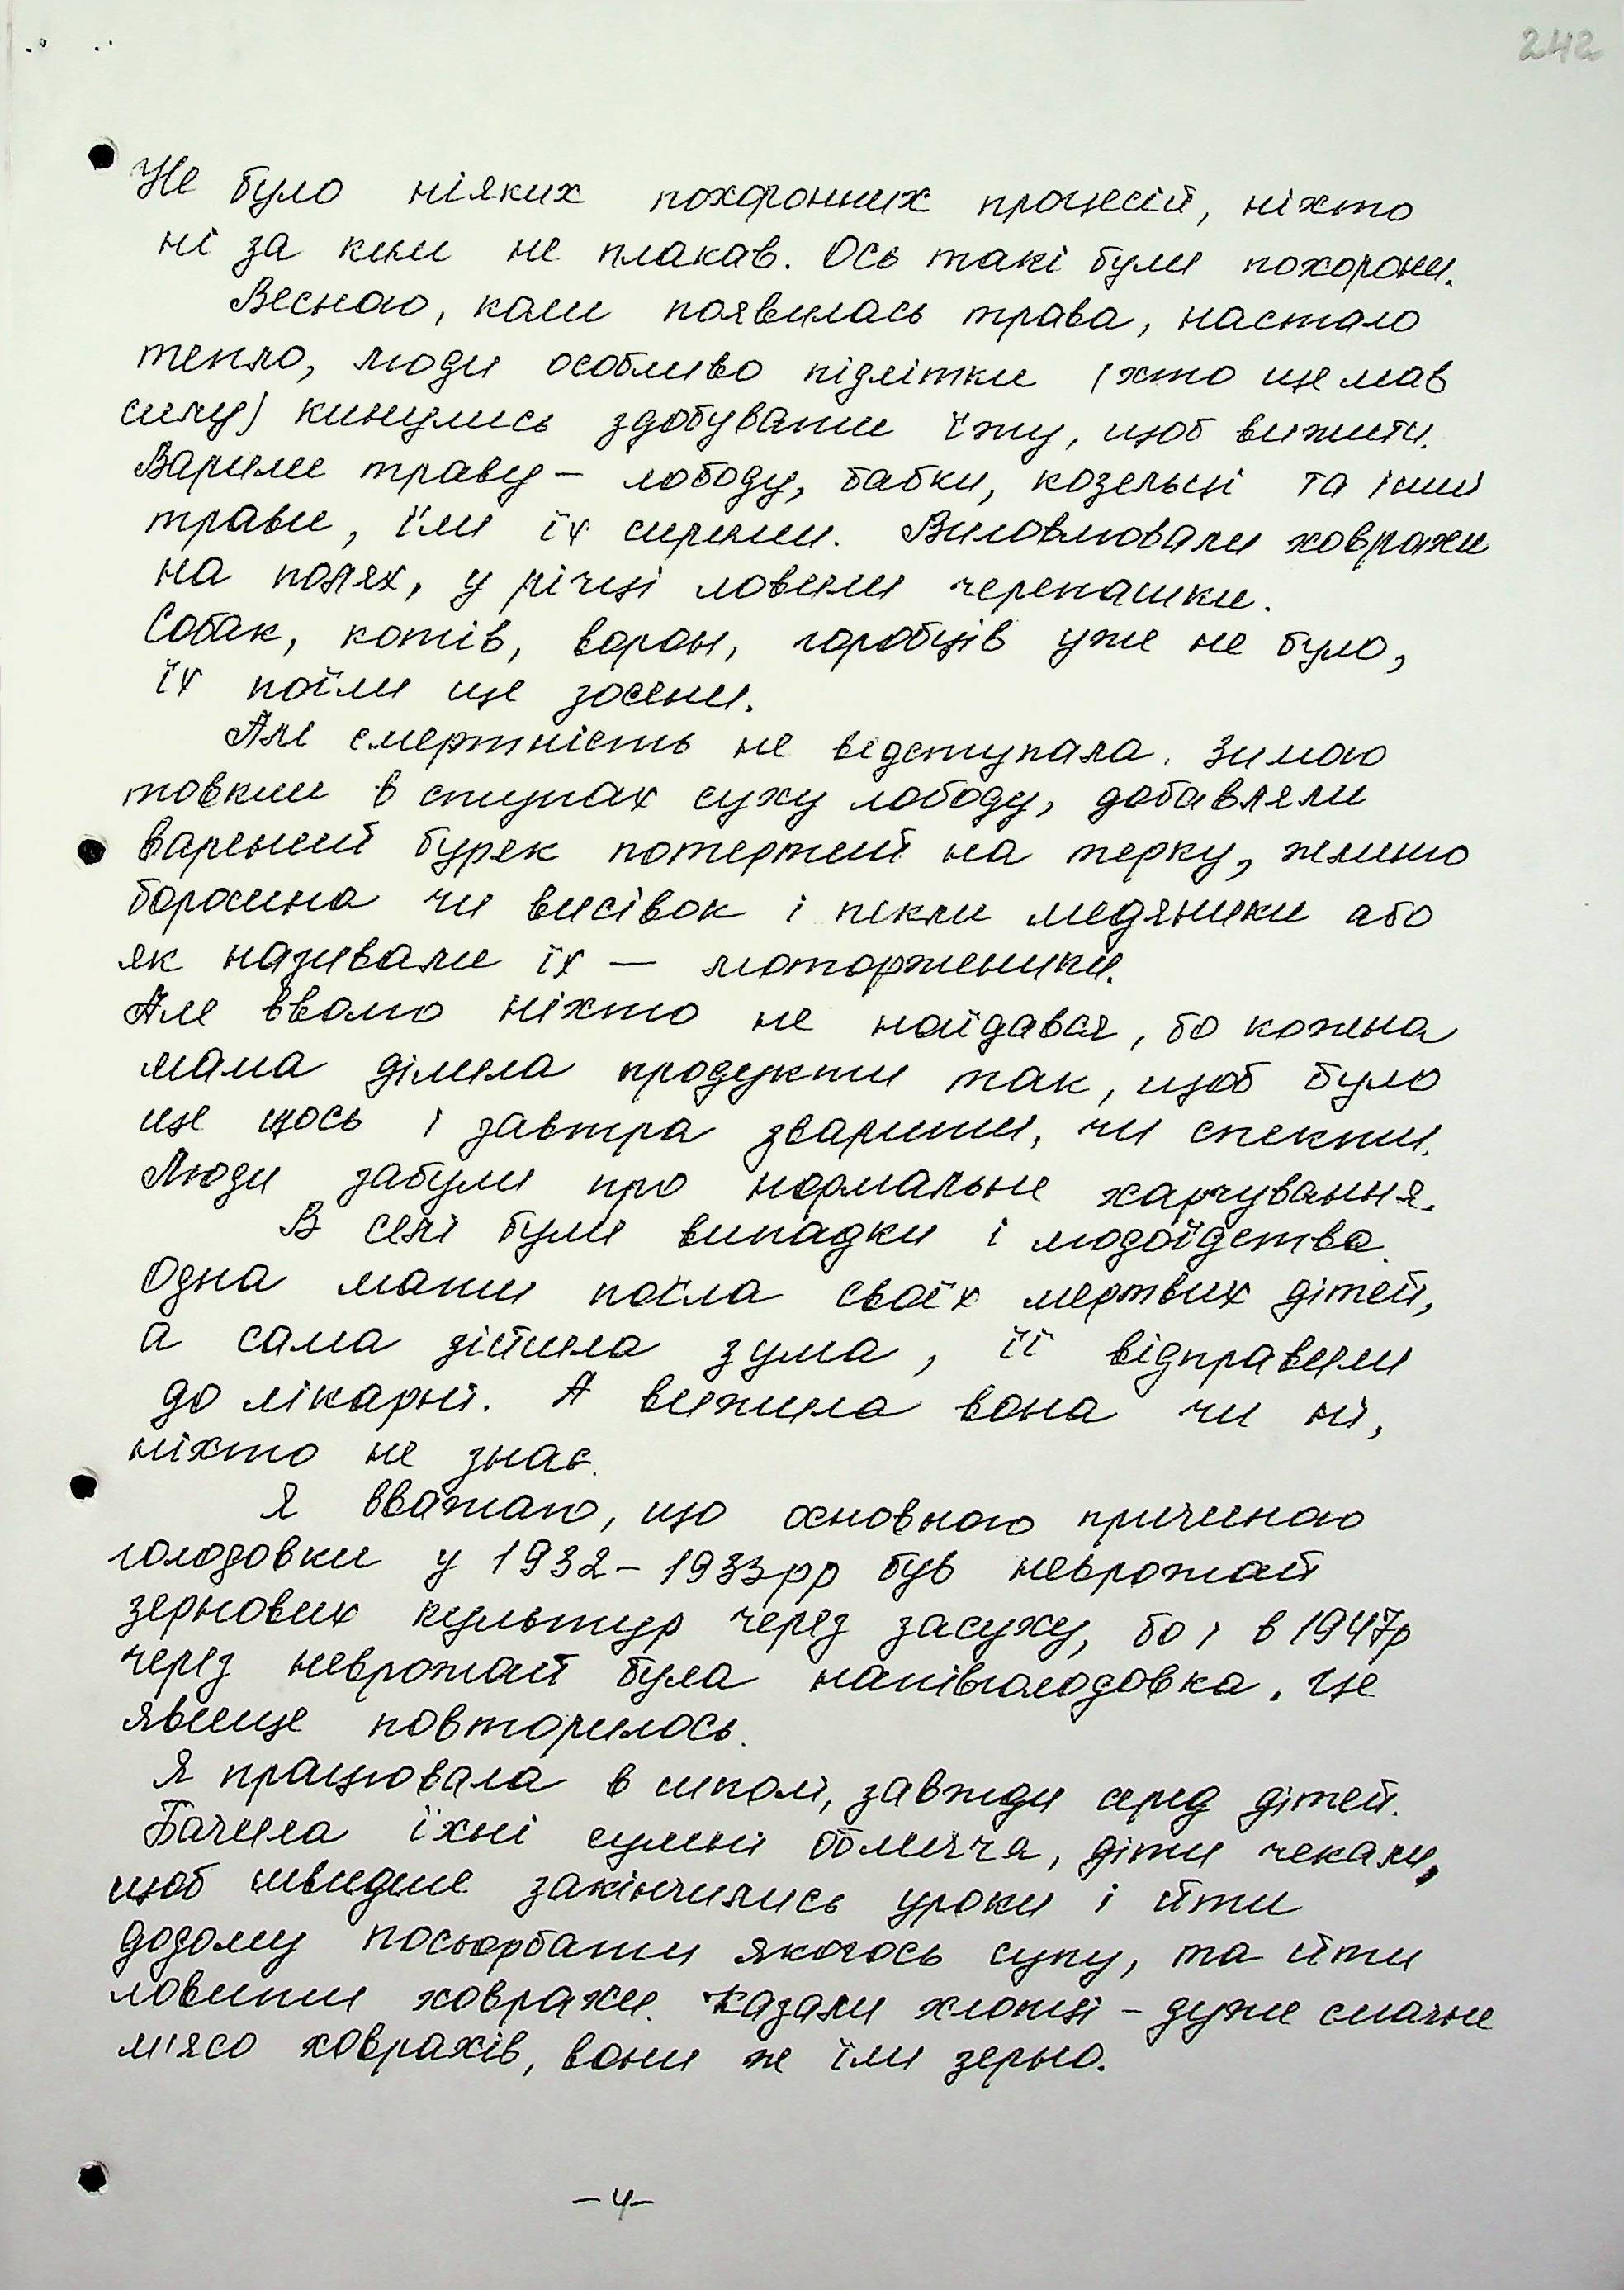 242
Не було ніяких похоронних процесій, ніхто
ні за ким не плакав. Ось такі були похорони.
Весною, коли появилась трава, настало
тепло, люди особливо підлітки (хто ще мав
силу) кинулись здобувати їжу, щоб вижити.
Варили траву – лободу, бабки, козельці та інші
трави, їли їх сирими. Виловлювали ховрахи
на полях, у річці ловили черепашки.
Собак, котів, ворон, горобців уже не було,
їх поїли ще зосени.
Але смертність не відступала. Зимою
товкли в ступах суху лободу, добавляли
варений буряк потертий на терку, жменю
борошна чи висівок і пекли медяники або
як називали їх — моторженики.
Але вволю ніхто не наїдався, бо кожна
мама ділила продукти так, щоб було
ще щось і завтра зварити, чи спекти.
Люди забули про нормальне харчування.
В селі були випадки і людоїдства.
Одна мати поїла своїх мертвих дітей,
а сама зійшла зума, її відправили
до лікарні. А вижила вона чи ні,
ніхто не знає.
Я вважаю, що основною причиною
голодовки у 1932 – 1933рр був неврожай
зернових культур через засуху, бо і в 1947р
через неврожай була напівголодовка. Це
явище повторилось.
Я працювала в школі, завжди серед дітей.
Бачила їхні сумні обличчя, діти чекали,
щоб швидше закінчились уроки і йти
додому посьорбати якогось супу, та йти
ловити ховрахи. Казали хлопці – дуже смачне
м'ясо ховрахів, вони ж їли зерно.
– 4 –